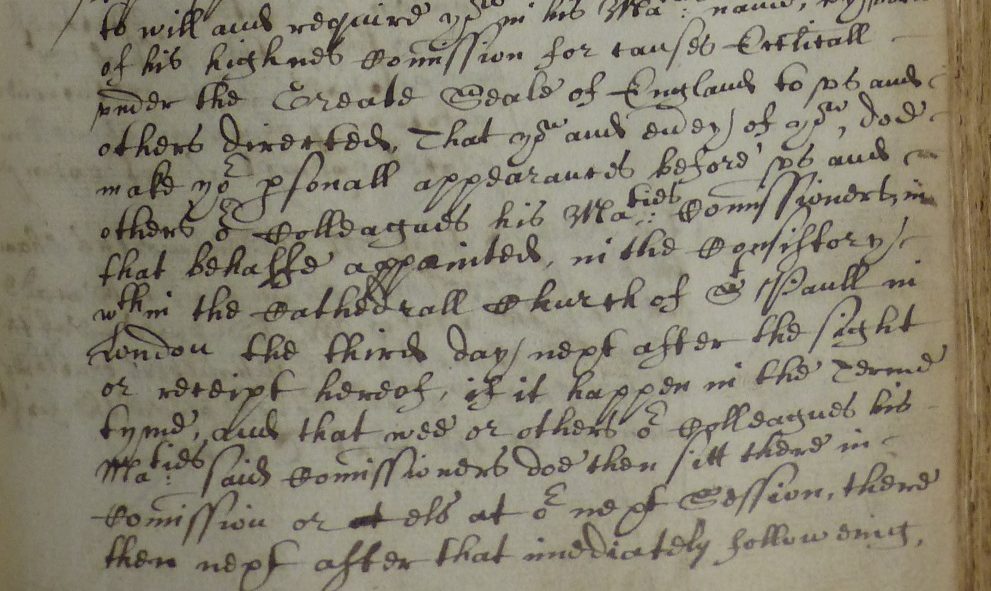 to will and require yow in his Matie: name, by
of his highnes Comission for causes Ecclīcall
vnder the Greate Seale of England to vs and
others directed, That yow and eu̅ey of yow, doe
make yor psonall appearances before vs and
others or Colleagues his Maties: Comissioners, in
that behalfe appointed, in the Consistory
wthin the Cathedrall Church of St Paull in
London the third day next after the sight
or receipt hereof, if it happen in the Terme
tyme, and that wee or others or Colleagues his
Maties: said Comissioners doe then sitt there in
Comission or els at or next Session, there
then next after that imediately followeing,